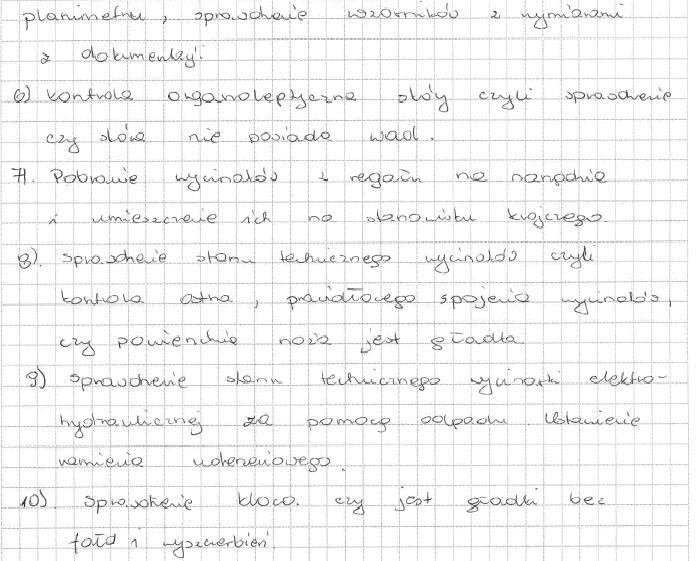 planimetru, sprawdzenie wzorników z wymiarami
z dokumentacji.
6) Kontrola organoleptyczna skóry czyli sprawdzenie
czy skóra nie posiada wad.
7). Pobranie wycinaków z regału na narzędzia
i umieszczenie ich na stanowisku krojczego.
8). Sprawdzenie stanu technicznego wycinaków czyli
kontrola ostrza, prawidłowego spojenia wycinaków,
czy powierzchnia noża jest gładka
9) Sprawdzenie stanu technicznego wycinarki elektro-
hydraulicznej za pomocą odpadu. Ustawienie
ramienia uderzeniowego.
10). Sprawdzenie kloca. czy jest gładki bez
fałd i wyszczerbień.